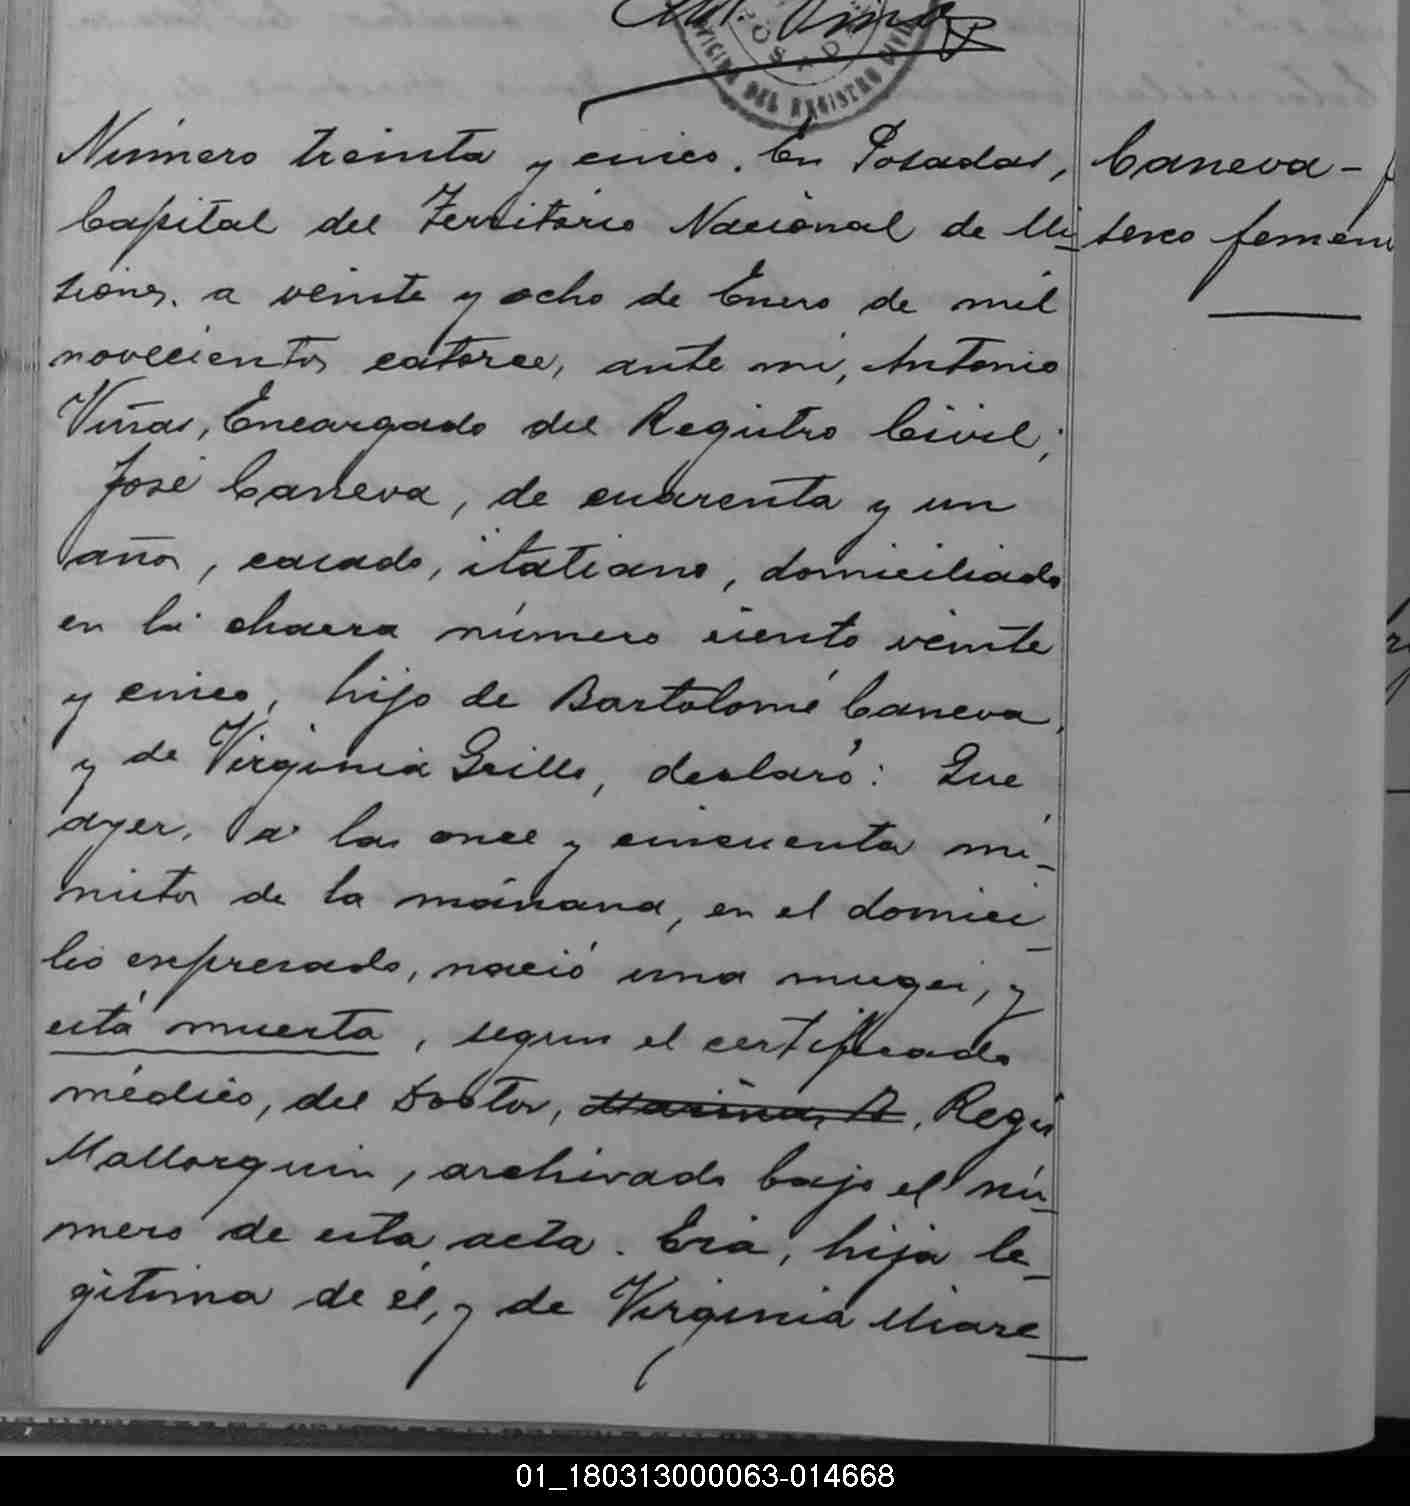 OFICINA DEL REGISTRO CIVIL
Número treinta y cinco. En Posadas,
Capital del Territorio Nacional de Mi
siones, a veinte y ocho de Enero de mil
novecientos catorce, ante mi, Antonio
Viñas, Encargado del Registro Civil;
José Caneva, de cuarenta y un
años, casado, italiano, domiciliado
en la chacra número ciento veinte
y cinco, hijo de Bartolomé Caneva,
y de Virginia Grillo, declaró: Que
ayer, a las once y cincuenta mi-
nutos de la mañana, en el domici
lio expresado, nació una muger, y
está muerta, segun el certificado
médico, del Doctor, Regis
Mallorquin, archivado bajo el nú-
mero de esta acta. Era, hija le-
gitima de él, y de Virginia Miare
Caneva-
sexo femeni
01_180313000063-014668